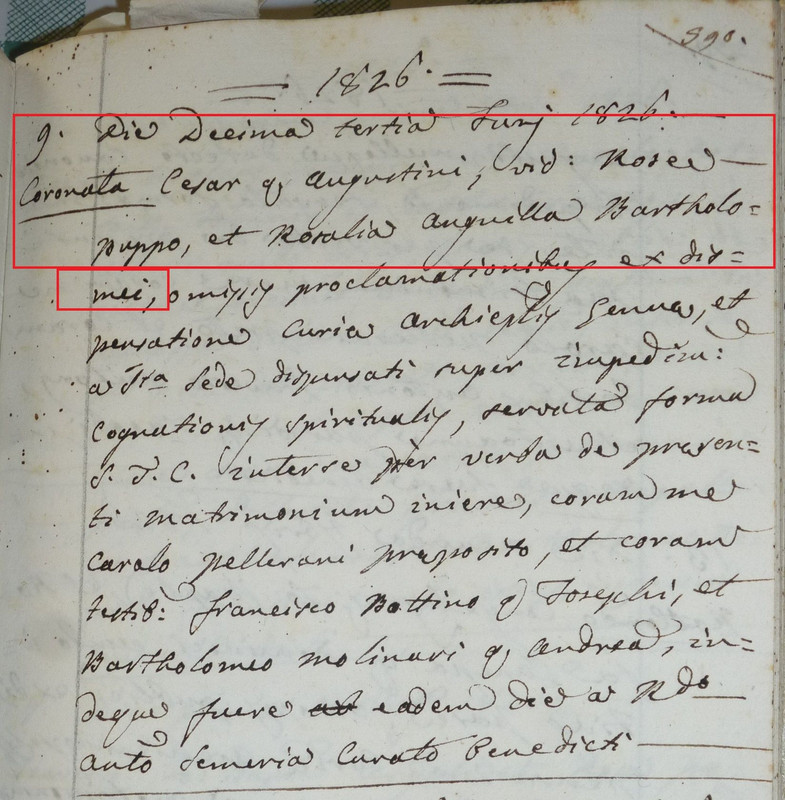 390.
1826.
9. Die Decima tertia Junj 1826.
Coronata Cesar q. Augustini, vid: Rosee
puppo, et Rosalia anguilla Bartholo=
mei, omissis proclamationibus ex dis=
pensatione Curia archieplis Genua, et
a Sta Sede dispensati super impedim:
cognationis spiritualis, servata forma
S. T. C. inter se per verba de presen=
ti matrimonium iniere, coram me
Carolo pellerani preposito, et coram
testib: francisco Bottino q Josephi, et
Bartholomeo molinari q. andrea, in=
deque fuere ab eadem die a Rdo
anto Semeria Curato Benedicti